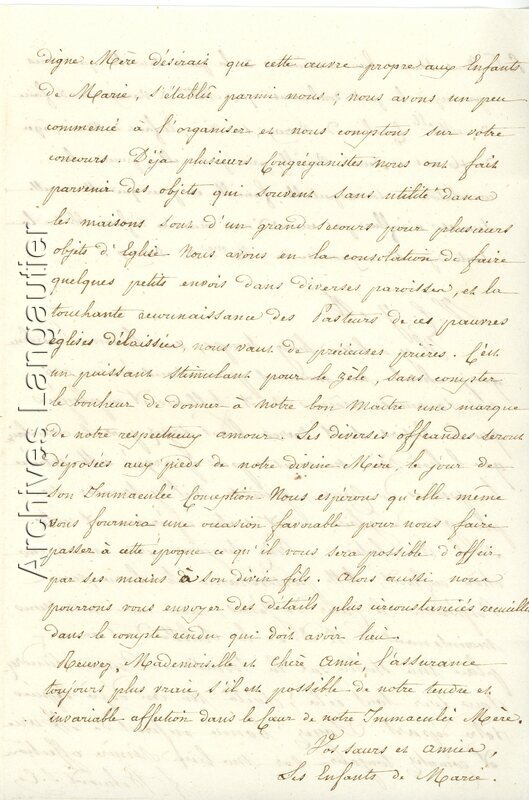 digne Mère désirait que cette œuvre propre aux Enfants
de Marie, s'établît parmi nous, nous avons un peu
commencé à l'organiser et nous comptons sur votre
concours. Déja plusieurs Congréganistes nous ont fait
parvenir des objets qui souvent sans utilité dans
les maisons sont d'un grand secours pour plusieurs
objets d'Eglise. Nous avons eu la consolation de faire
quelques petits envois dans diverses paroisses, et la
touchante reconnaissance des Pasteurs de ces pauvres
églises délaissées, nous vaut de précieuses prières. C'est
un puissant stimulant pour le zèle, sans compter
le bonheur de donner à notre bon Maître une marque
de notre respectueux amour. Les diverses offrandes seront
déposées aux pieds de notre divine Mère, le jour de
son Immaculée Conception. Nous espérons qu'elle même
vous fournira une occasion favorable pour nous faire
passer à cette époque ce qu'il vous sera possible d'offrir
par ses mains à son divin fils. Alors aussi nous
pourrons vous envoyer des détails plus circonstanciés recueillis
dans le compte rendu qui doit avoir lieu.
Recevez, Mademoiselle et chère amie, l'assurance
toujours plus vraie, s'il est possible de notre tendre et
invariable affection dans le Cœur de notre Immaculée Mère.
Vos sœurs et amies,
Les Enfants de Marie.
Archives Langautier